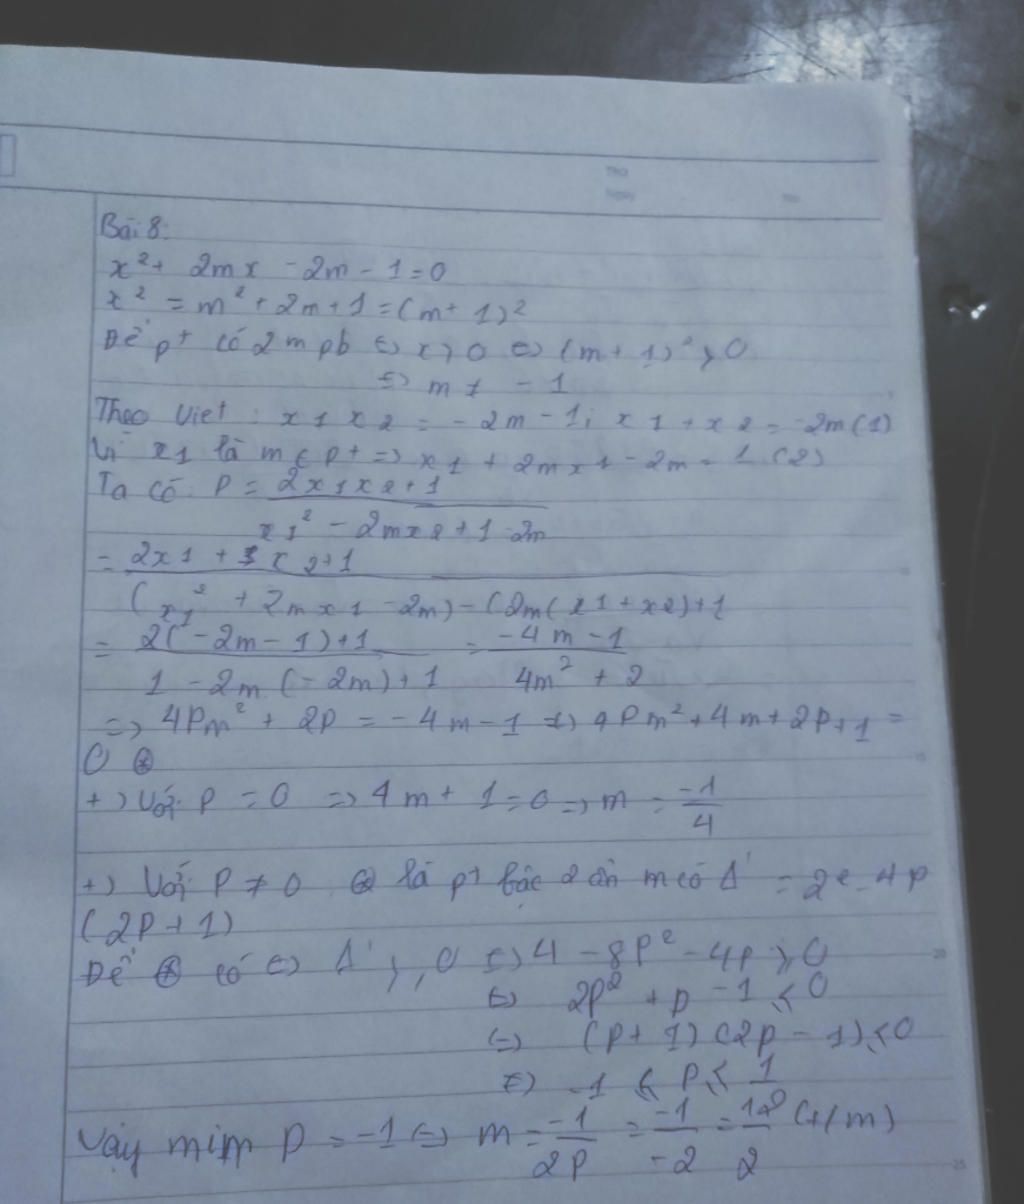 Bài 8:
x² + 2mx - 2m - 1 = 0
x² = m² + 2m + 1 = (m + 1)²
Để pt có 2 m pb <=> x > 0 <=> (m + 1)² > 0
<=> m ≠ - 1
Theo Viet : x1 x2 = - 2m - 1; x1 + x2 = -2m (1)
Vì x1 là m c pt => x1 + 2mx1 - 2m = 1 (2)
Ta có: P = 2x1x2 + 1 / x1² - 2mx2 + 1 - 2m
= 2x1 + x2 + 1 / (x1² + 2mx1 - 2m) - (2m(x1 + x2) + 1
= 2(-2m - 1) + 1 / 1 - 2m (-2m) + 1 = -4m - 1 / 4m² + 2
=> 4Pm² + 2P = - 4m - 1 => 4Pm² + 4m + 2P + 1 =
0 ⊛
+) Với P = 0 => 4m + 1 = 0 => m = -1/4
+) Với P ≠ 0 ⊛ là pt bậc 2 ẩn m có Δ' = 2² - 4P
(2P + 1)
Để ⊛ có <=> Δ' >, 0 <=> 4 - 8P² - 4P ≥ 0
<=> 2P² + P - 1 ≤ 0
<=> (P + 1) (2P - 1) ≤ 0
<=> -1 ≤ P ≤ 1
Vậy mim P = -1 <=> m = -1/2P = -1/-2 = 1/2 (t/m)